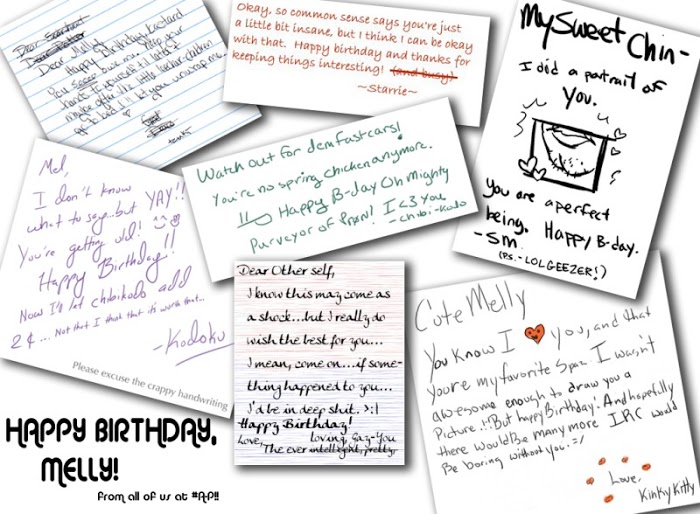 Dear Melly,
Happy Birthday, bastard
You
hands to yourself
maybe after the little
go to bed I'll let you unwrap me.
Okay, so common sense says you're just
a little bit insane, but I think I can be okay
with that. Happy birthday and thanks for
keeping things interesting! (and busy)
~Starrie~
My Sweet Chin-
I did a portrait of
you.
you are a perfect
being. Happy B-day.
-Sm.
(P.S.- LOLGEEZER!)
Mel,
I don't know
what to say..but YAY!!
You're getting old!
Happy Birthday!!
Now I'll let chibikodo add
2¢... Not that I think that it's worth that...
-Kodoku
Please excuse the crappy handwriting
Watch out for dem fast cars!
You're no spring chicken anymore.
Happy B-day Oh Mighty
Purveyor of Pr0n! I <3 You
-chibi-kodo
Dear Other self,
I know this may come as
a shock...but I really do
wish the best for you...
I mean, come on...if some-
thing happened to you...
I'd be in deep shit. >:|
Happy Birthday!
Love, Loving, Gaz-You
The ever intelligent, pretty
Cute Melly
You know I you, and that
you're my favorite Spaz. I wasn't
awesome enough to draw you a
Picture!! But happy Birthday! And hopefully
there would be many more! IRC would
Be boring without you. =/
Love,
Kinky Kitty
HAPPY BIRTHDAY,
MELLY!
From all of us at #AP!!